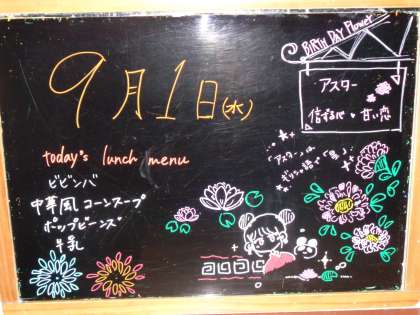 BIRTH DAY Flower
アスター
信ずる心・甘い恋
9月1日(水)
today's lunch menu
ビビンバ
中華風コーンスープ
ポップビーンズ
牛乳
「アスター」は
ギリシャ語で「星」